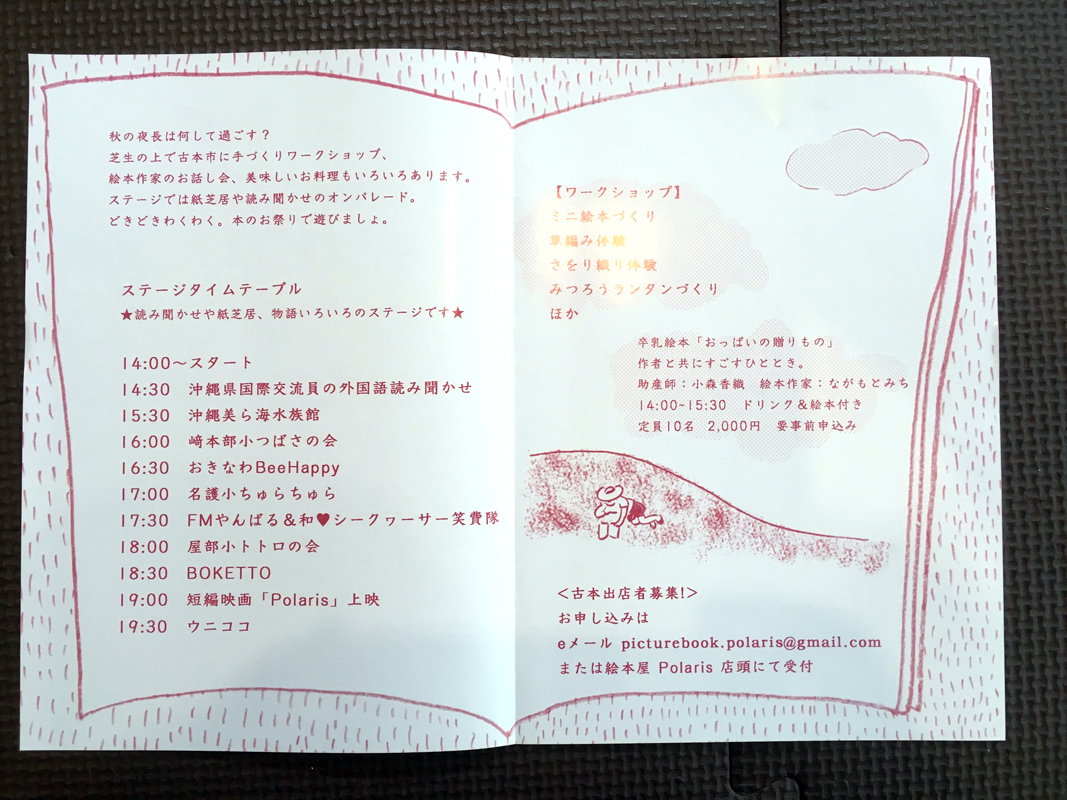 秋の夜長は何して過ごす？
芝生の上で古本市に手づくりワークショップ、
絵本作家のお話し会、美味しいお料理もいろいろあります。
ステージでは紙芝居や読み聞かせのオンパレード。
どきどきわくわく。本のお祭りで遊びましょ。
ステージタイムテーブル
★読み聞かせや紙芝居、物語いろいろのステージです★
14:00〜スタート
14:30 沖縄県国際交流員の外国語読み聞かせ
15:30 沖縄美ら海水族館
16:00 﨑本部小つばさの会
16:30 おきなわBeeHappy
17:00 名護小ちゅらちゅら
17:30 FMやんばる＆和♥シークヮーサー笑費隊
18:00 屋部小トトロの会
18:30 BOKETTO
19:00 短編映画「Polaris」上映
19:30 ウニココ
【ワークショップ】
ミニ絵本づくり
草編み体験
さをり織り体験
みつろうランタンづくり
ほか
卒乳絵本「おっぱいの贈りもの」
作者と共にすごすひととき。
助産師：小森香織 絵本作家：ながもとみち
14:00-15:30 ドリンク＆絵本付き
定員10名 2,000円 要事前申込み
<古本出店者募集!>
お申し込みは
eメール picturebook.polaris@gmail.com
または絵本屋 Polaris 店頭にて受付